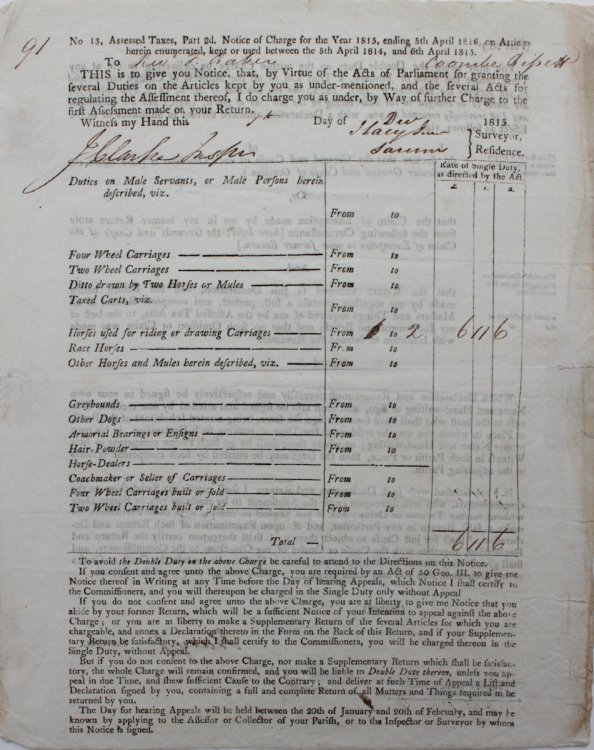 91
No 13, Assessed Taxes, Part 2d. Notice of Charge for the Year 1815, ending 5th April 1816, on Articles
herein enumerated, kept or used between the 5th April 1814, and 6th April 1815.
To Rev Coombe Bissett
THIS is to give you Notice, that, by Virtue of the Acts of Parliament for granting the
several Duties on the Articles kept by you as under-mentioned, and the several Acts for
regulating the Assessment thereof, I do charge you as under, by Way of further Charge to the
first Assessment made or your Return.
Witness my Hand this 7th Day of Decr 1815.
Stacy Surveyor,
J Clarke Inspr Sarum Residence.
Rate of Single Duty,
as directed by the Act.
£. s. d.
Duties on Male Servants, or Male Persons herein
described, viz.
From to
Four Wheel Carriages From to
Two Wheel Carriages From to
Ditto drawn by Two Horses or Mules From to
Taxed Carts, viz.
From to
Horses used for riding or drawing Carriages From 1 to 2 6 11 6
Race Horses From to
Other Horses and Mules herein described, viz. From to
Greyhounds From to
Other Dogs From to
Armorial Bearings or Ensigns From to
Hair-Powder From to
Horse-Dealers
Coachmaker or Seller of Carriages From to
Four Wheel Carriages built or sold From to
Two Wheel Carriages built or sold From to
Total 6 11 6
To avoid the Double Duty on the above Charge be careful to attend to the Directions on this Notice.
If you consent and agree unto the above Charge, you are required by an Act of 50 Geo. III. to give me
Notice thereof in Writing at any Time before the Day of hearing Appeals, which Notice I shall certify to
the Commissioners, and you will thereupon be charged in the Single Duty only without Appeal
If you do not consent and agree unto the above Charge, you are at liberty to give me Notice that you
abide by your former Return, which will be a sufficient Notice of your Intention to appeal against the above
Charge; or you are at liberty to make a Supplementary Return of the several Articles for which you are
chargeable, and annex a Declaration thereto in the Form on the Back of this Return, and if your Supplemen-
tary Return be satisfactory, which I shall certify to the Commissioners, you will be charged thereon in the
Single Duty, without Appeal.
But if you do not consent to the above Charge, nor make a Supplementary Return which shall be satisfac-
tory, the whole Charge will remain confirmed, and you will be liable to Double Duty thereon, unless you ap-
peal in due Time, and shew sufficient Cause to the Contrary; and deliver at such Time of Appeal a List and
Declaration signed by you, containing a full and complete Return of all Matters and Things required to be
returned by you.
The Day for hearing Appeals will be held between the 20th of January and 20th of February, and may be
known by applying to the Assessor or Collector of your Parish, or to the Inspector or Surveyor by whom
this Notice is signed.